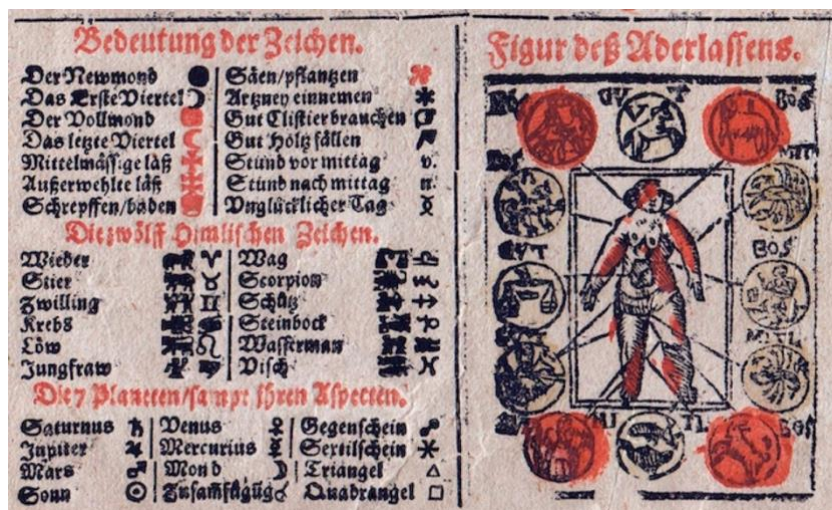 Bedeutung der Zeichen.
Der Newmond
Das Erste Viertel
Der Vollmond
Das letzte Viertel
Mittelmäss:ge läß
Außerwehlte läß
Schrepffen/baden
Säen/pflantzen
Artzney einnemen
Gut Clistier brauchen
Gut Holtz fällen
Stund vor mittag v.
Stund nach mittag n.
Vnglücklicher Tag
Die zwölff Himlischen Zeichen.
Wieder ♈
Stier ♉
Zwilling ♊
Krebs
Löw ♌
Jungfraw
Wag
Scorpion
Schütz
Steinbock
Wasserman
Visch ♓
Die 7 Planeten/sampt ihren Aspecten.
Saturnus ♄
Jupiter ♃
Mars ♂
Sonn ☉
Venus ♀
Mercurius ☿
Mond ☽
Zusamfügūg ☌
Gegenschein ☍
Sextilschein ⚹
Triangel △
Quadrangel □
Figur deß Aderlassens.
BÖS
MIT
GVT
BÖS
MITL
BÖS